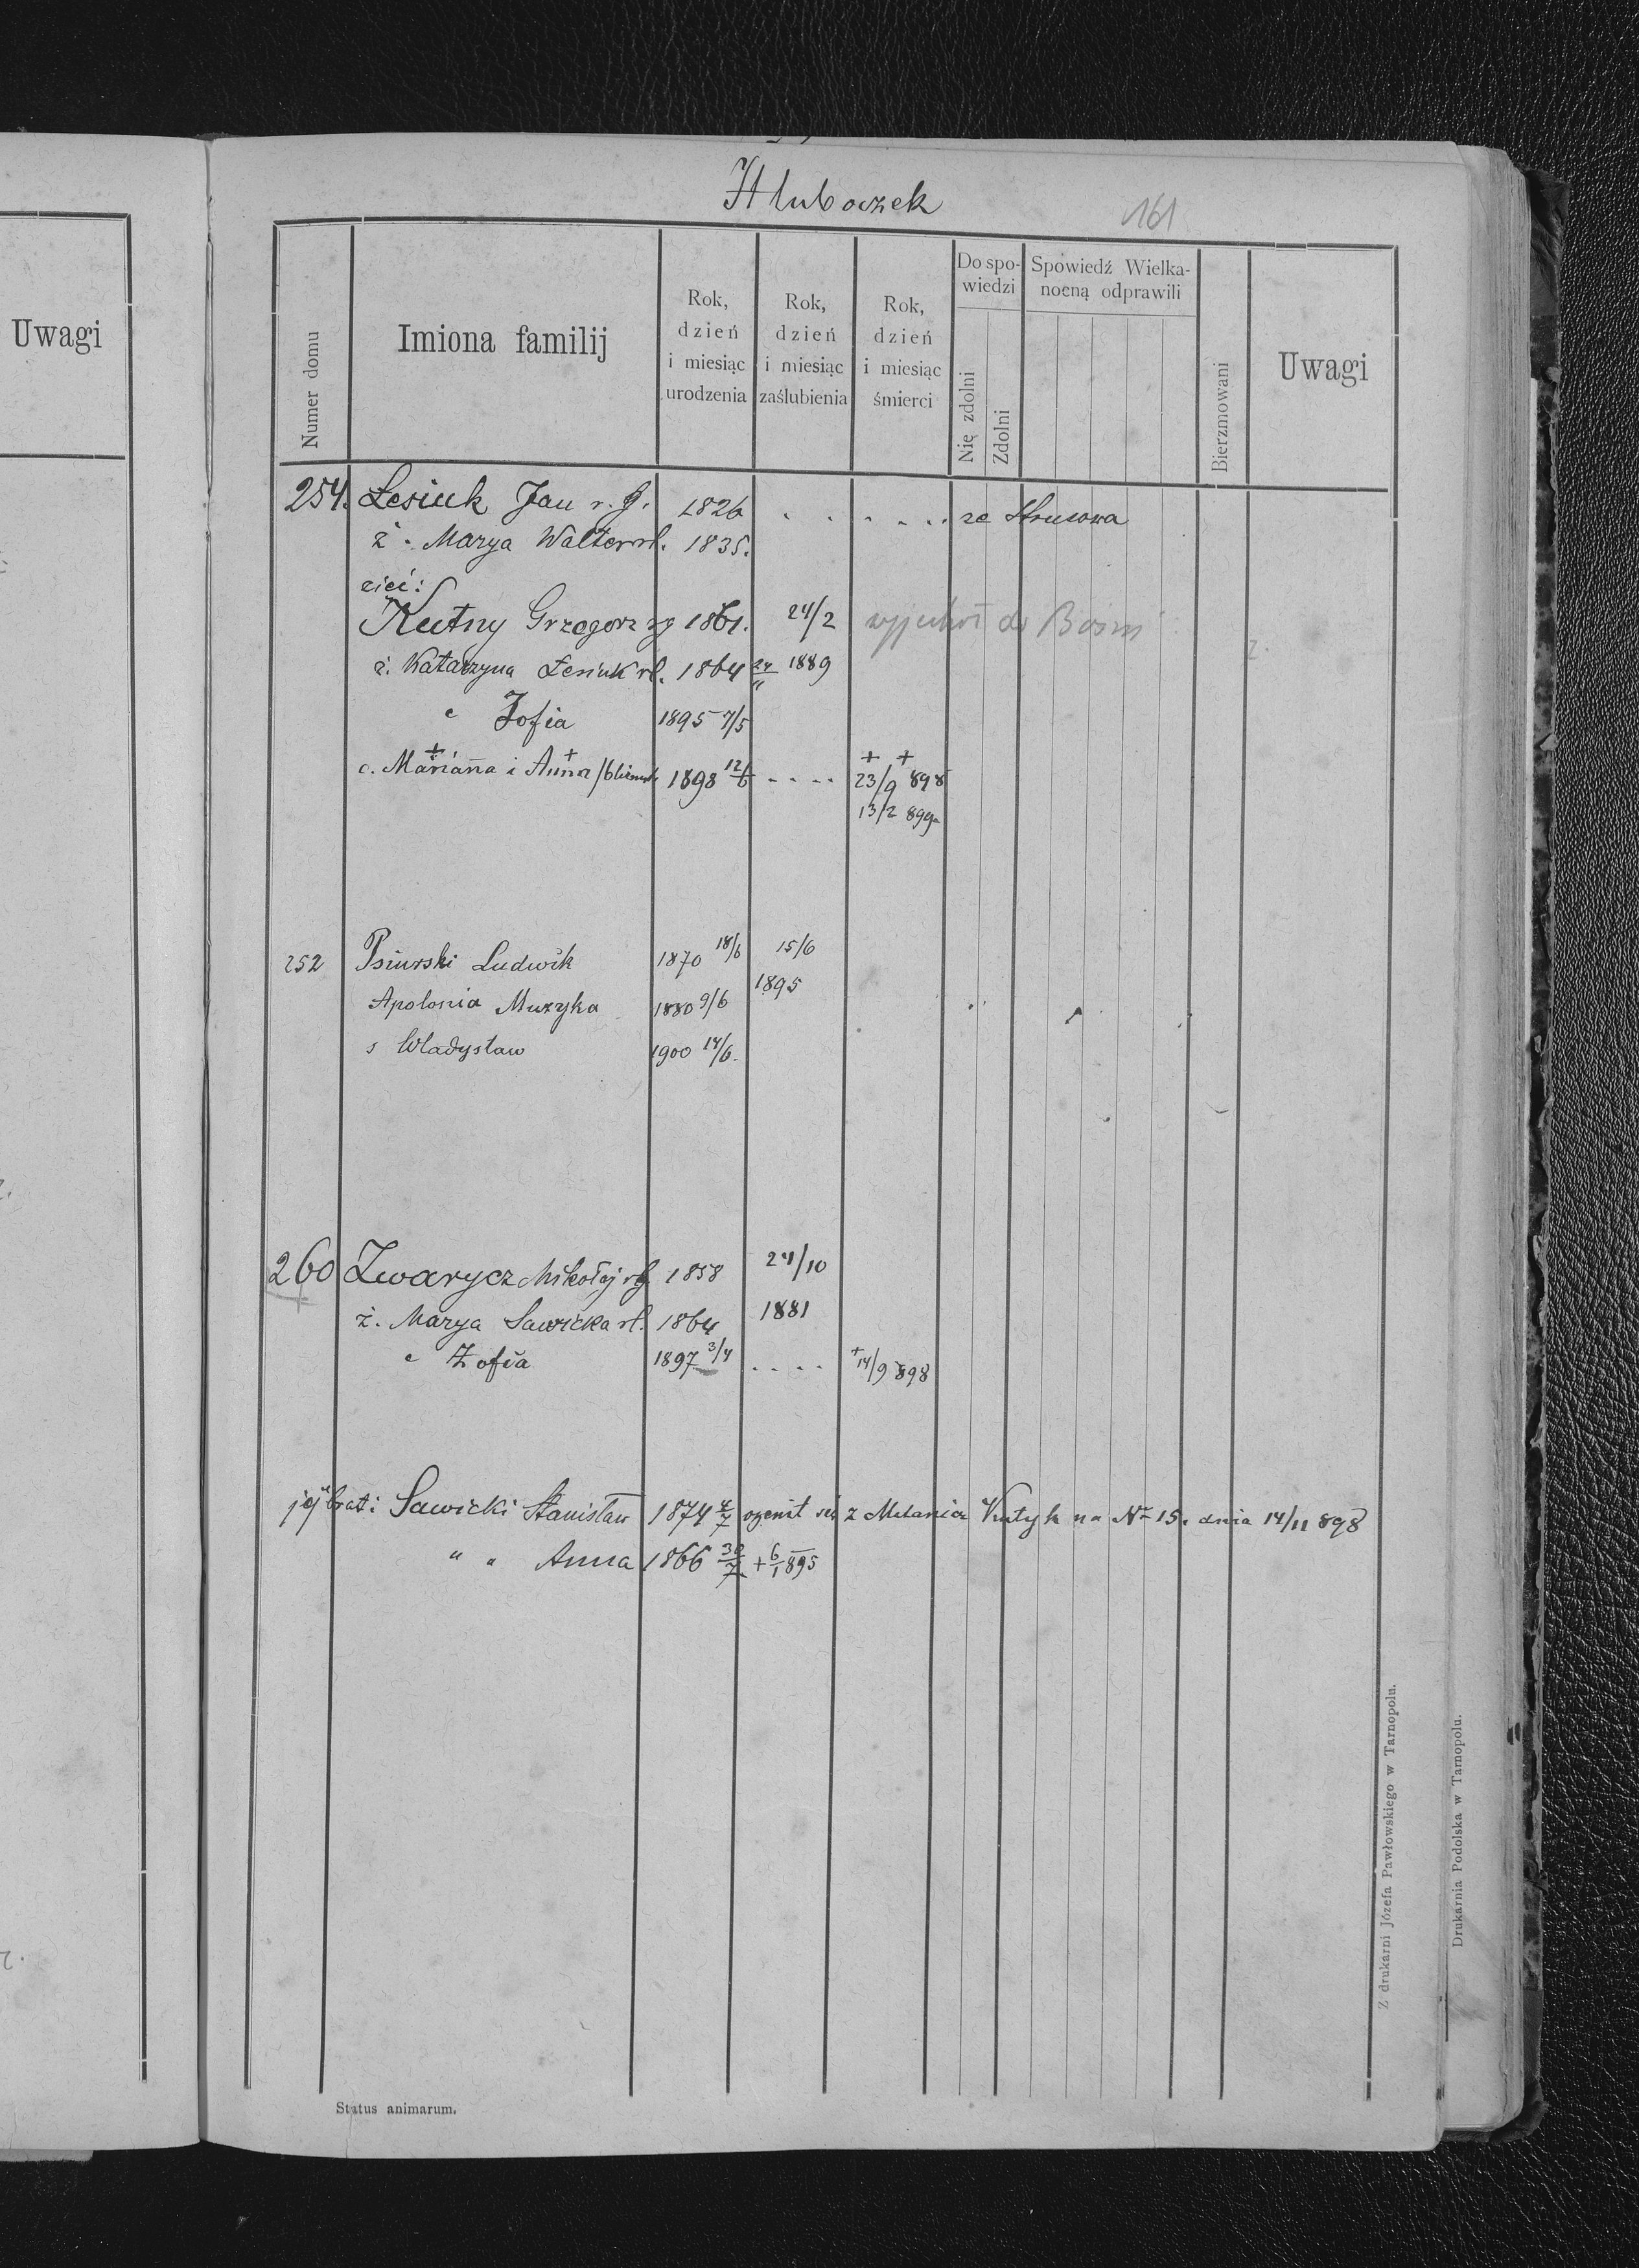 Uwagi
Hluboczek
161
Numer domu
Imiona familij
Rok, dzień i miesiąc urodzenia
Rok, dzień i miesiąc zaślubienia
Rok, dzień i miesiąc śmierci
Do spowiedzi
Nie zdolni
Zdolni
Spowiedź Wielkanocną odprawili
Bierzmowani
Uwagi
254. Lesiuk Jan r. g. 1826 . . . . . . ze Strusowa
ż. Marya Walter rł. 1835.
zięć:
Kutny Grzegorz rg 1861. 24/2 wyjechał do Bośni
ż. Katarzyna Lesiuk rł. 1864 24/11 1889
c Zofia 1895 7/5
c. + Marianna i + Anna /bliźnięta 1898 12/6 . . . . + + 23/9 898
13/2 899
252 Psiurski Ludwik 1870 18/6 15/6
1895
Apolonia Muzyka 1880 9/6
s Władysław 1900 14/6.
260 Zwarycz Mikołaj rg 1858 24/10
ż. Marya Sawicka rł. 1864 1881
c Zofia 1897 3/4 . . . . +14/9 898
jej brat: Sawicki Stanisław 1874 4/7 ożenił się z Melania Kutyk na Nr 15. dnia 14/11 898
" " Anna 1866 30/7 + 6/1 895
Z drukarni Józefa Pawłowskiego w Tarnopolu.
Drukarnia Podolska w Tarnopolu.
Status animarum.